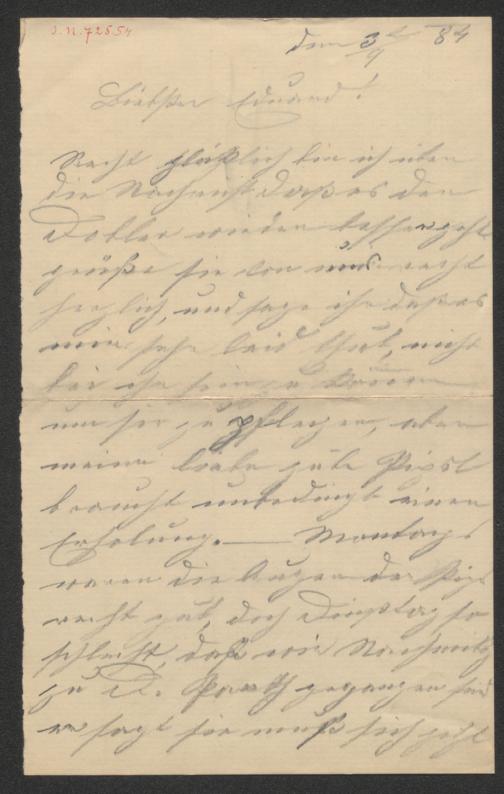 J.N. 72554
den 3/4 84
Liebster Eduard!
Recht glücklich bin ich über
die Nachricht daß es der
Tobler wieder besser geht
grüße sie von uns recht
herzlich, und sage ihr daß es
mir sehr leid thut, nicht
bei ihr sein zu können
um sie zu pflegen, aber
meine liebe gute
braucht unbedingt einen
Erholung. — Montags
waren die Augen der
recht gut, doch Dienstag so
schlecht, daß wir Nachmittg
zu D. gegangen sind
er sagt sie muß sich jetzt